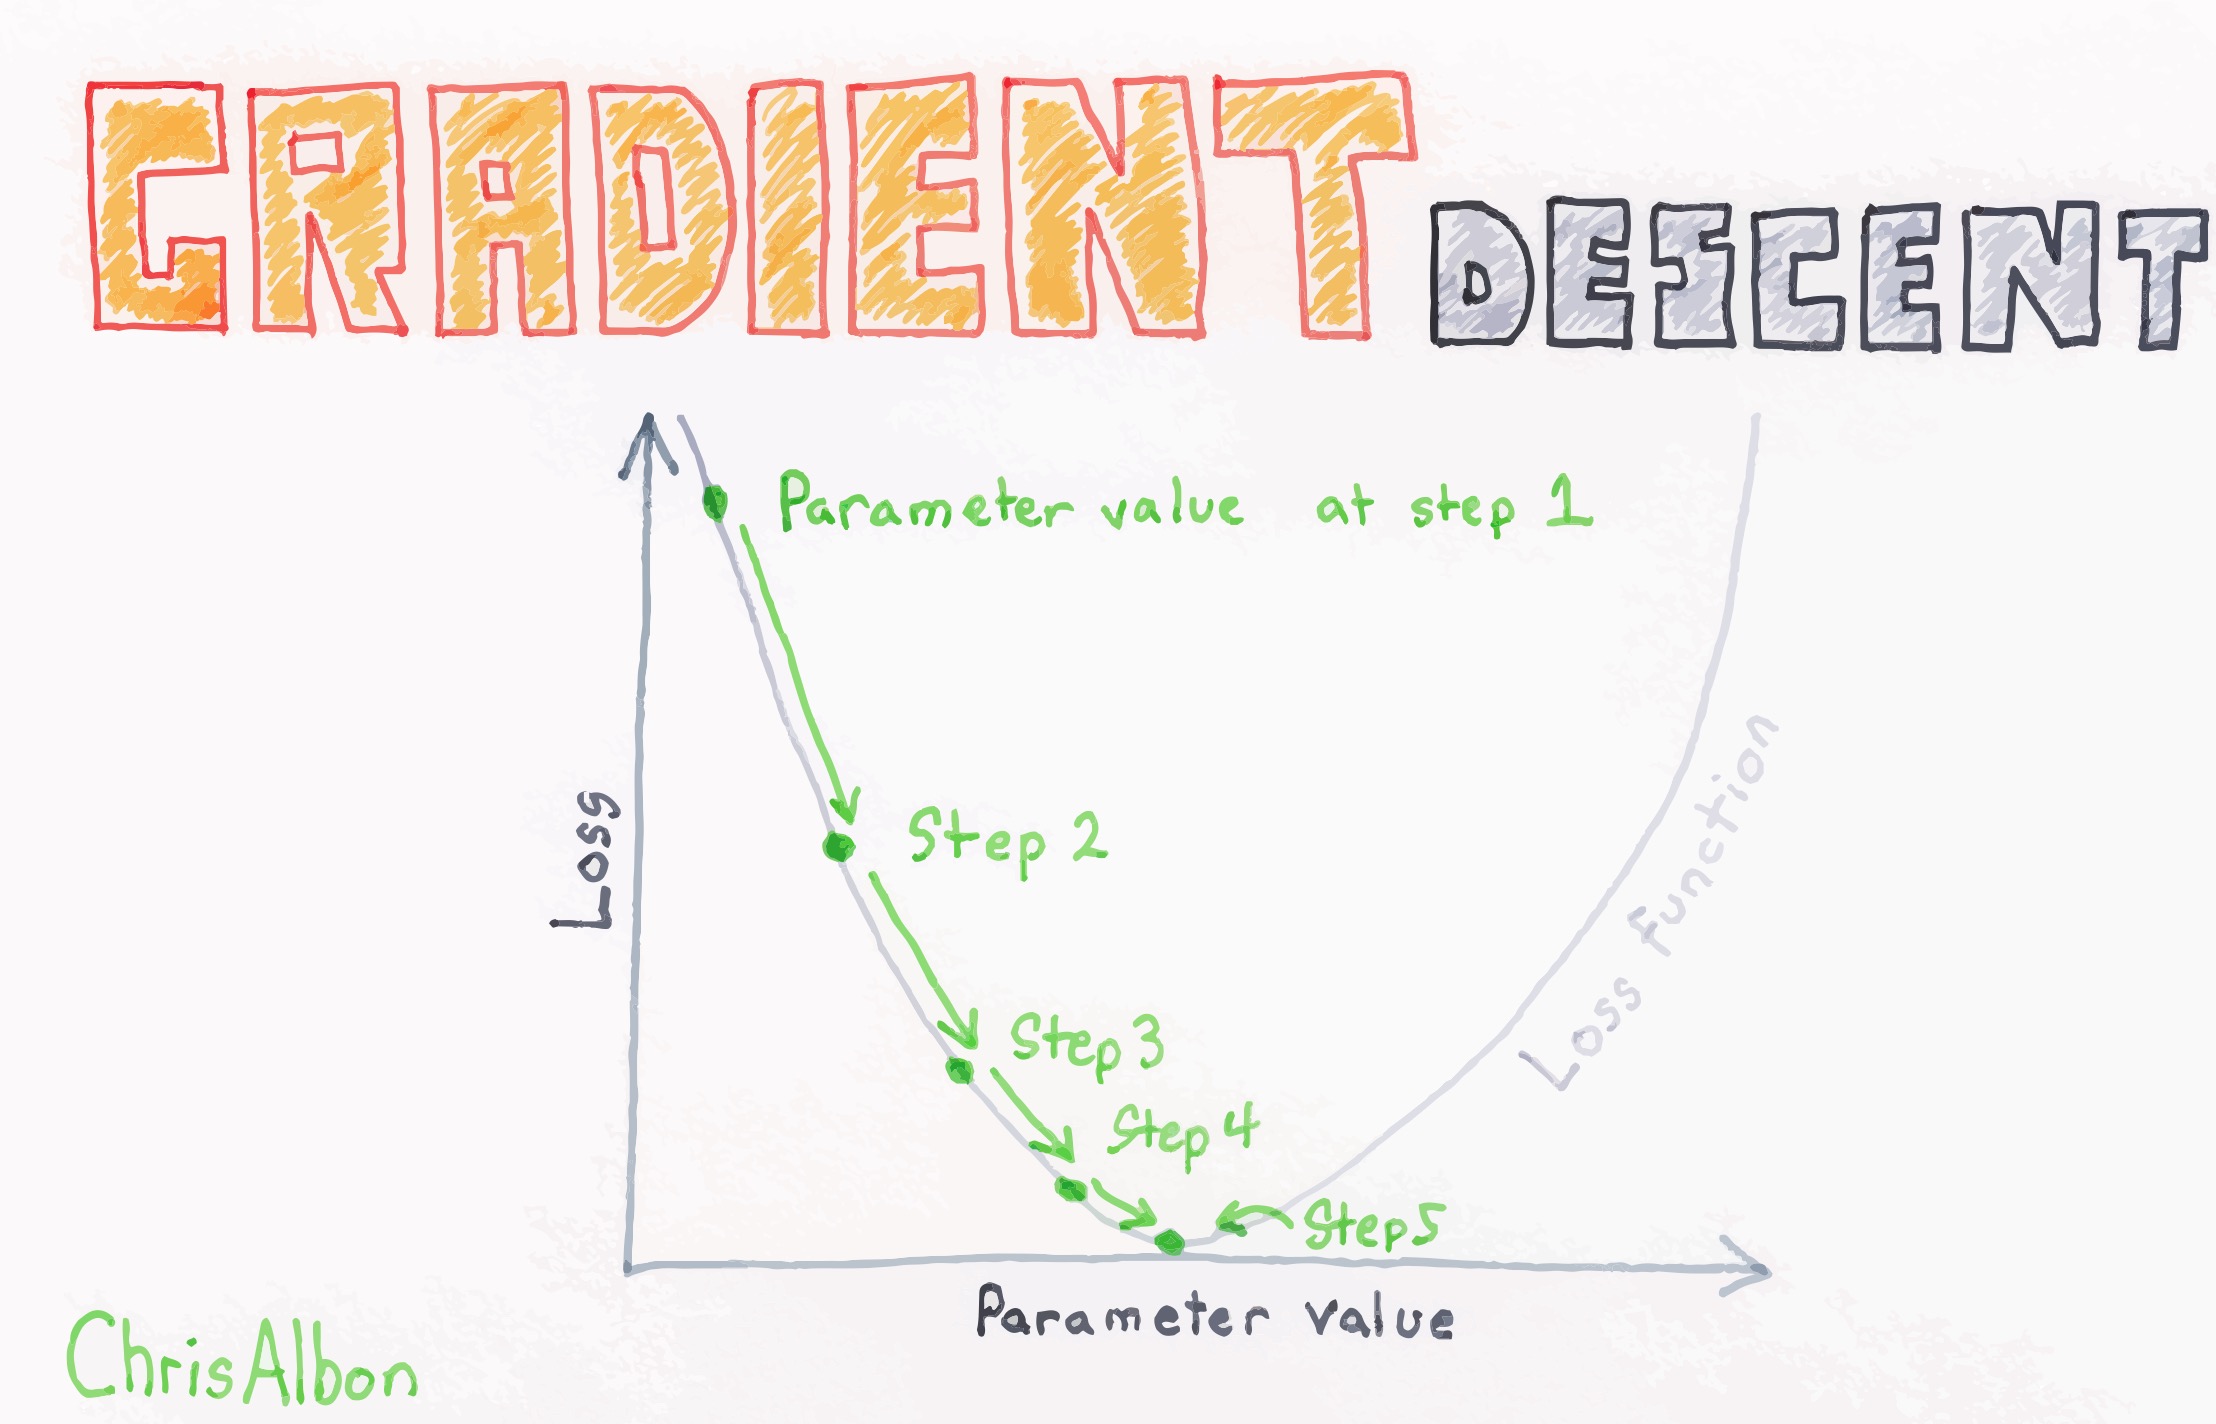 GRADIENT DESCENT
Parameter value at step 1
Step 2
Step 3
Step 4
Step 5
Loss
Loss Function
Parameter value
ChrisAlbon